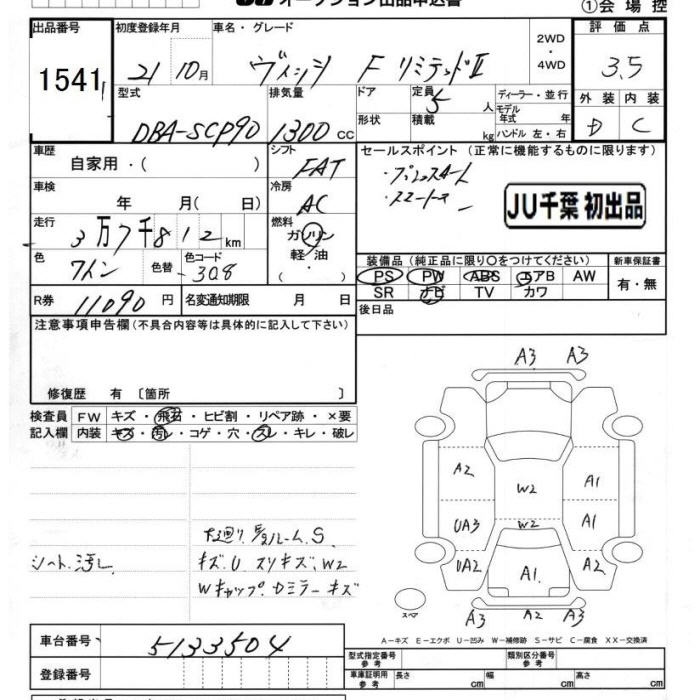 オークション出品申込書
①会場控
出品番号 初度登録年月 車名・グレード 2WD・4WD 評価点
1541 21 10月 ヴィッツ F リミテッドⅡ 3.5
型式 排気量 ドア 定員 5 人 ディーラー・並行 外装 内装
DBA-SCP90 1300 CC 形状 積載 kg モデル年式 年 ハンドル 左・右 D C
車歴 シフト セールスポイント (正常に機能するものに限ります)
自家用・( ) FAT ・プッシュスタート
車検 冷房 ・スマートキー
年 月( 日) AC JU千葉 初出品
走行 燃料
3万7千812km ガソリン
色 色替 色コード 軽油 装備品 (純正品に限り○をつけてください) 新車保証書
ワイン 308 ・( ) PS PW ABS エアB AW 有・無
R券 11090円 名変通知期限 月 日 SR ナビ TV カワ
注意事項申告欄(不具合内容等は具体的に記入して下さい) 後日品
修復歴 有〔箇所 〕
検査員 FW キズ・飛石・ヒビ割・リペア跡・×要
記入欄 内装 キズ・汚レ・コゲ・穴・スレ・キレ・破レ
シート汚レ
キズ、U スリキズ、W2
Wキャップ、Dミラーキズ
A3 A3
A2 W2 A1
UA3 W2 A1
UA2 A1 A2
A3 A2 A3
スペア
A-キズ E-エクボ U-凹み W-補修跡 S-サビ C-腐食 XX-交換済
車台番号 5133504
登録番号
型式指定番号 参考 類別区分番号 参考
車庫証明用 参考 長さ cm 幅 cm 高さ cm